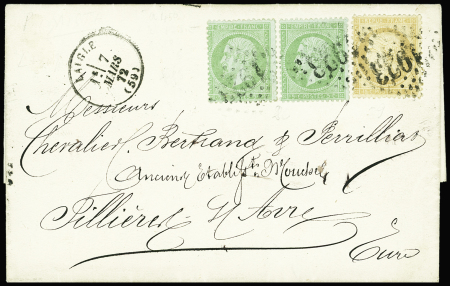 LAIGLE
7
MARS
72
(59)
1933
Messieurs
Chevalier, Bertrand & Perrillias
Anciens Établ.ts Mouchel
Tillières s/ Avre
Eure